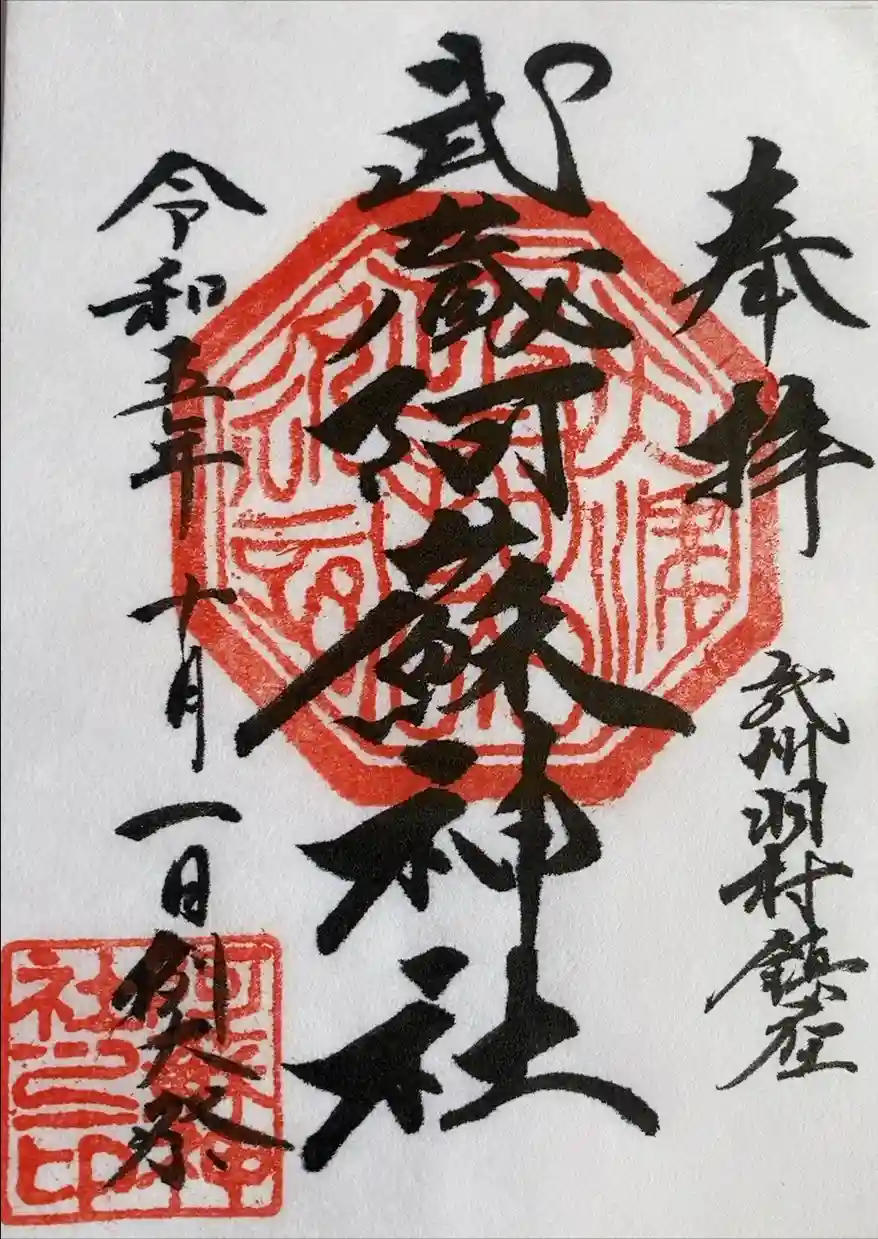 奉拝
武州羽村鎮座
武蔵阿蘇神社
令和五年十月一日例大祭
阿蘇神
社之印